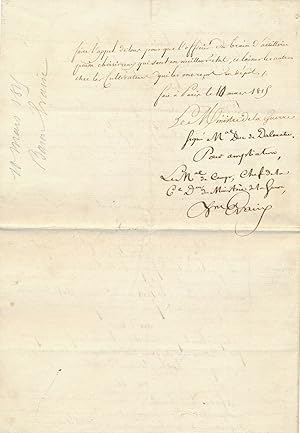 faire l'appel de tous pour que l'officier du train d'artillerie
puisse choisir ceux qui sont en meilleur état, et laisser les autres
chez les Cultivateurs qui les ont reçus en dépôt.
fait à Paris le 10 mars 1815
Le Ministre de la Guerre
signé Mal Duc de Dalmatie
Pour ampliation,
Le Mal de Camp, Chef de la
6e Don du Ministère de la Guerre,
10 mars 1815
Baron